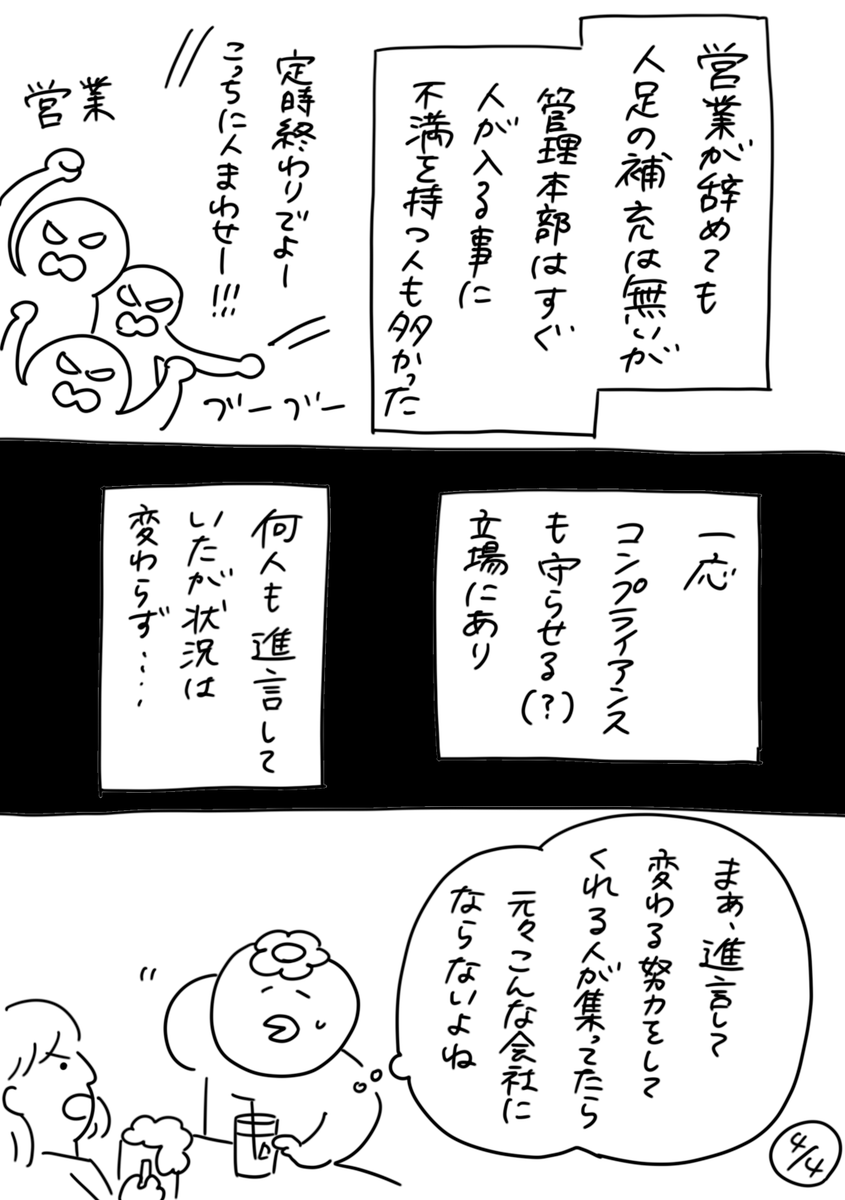 営業が辞めても
人足の補充は無いが
管理本部はすぐ
人が入る事に
不満を持つ人も多かった
定時終わりでよー
こっちに人まわせー!!!
営業
ブーブー
一応
コンプライアンス
も守らせる(?)
立場にあり
何人も進言して
いたが状況は
変わらず・・・・
まぁ、進言して
変わる努力をして
くれる人が集ってたら
元々こんな会社に
ならないよね
4/4